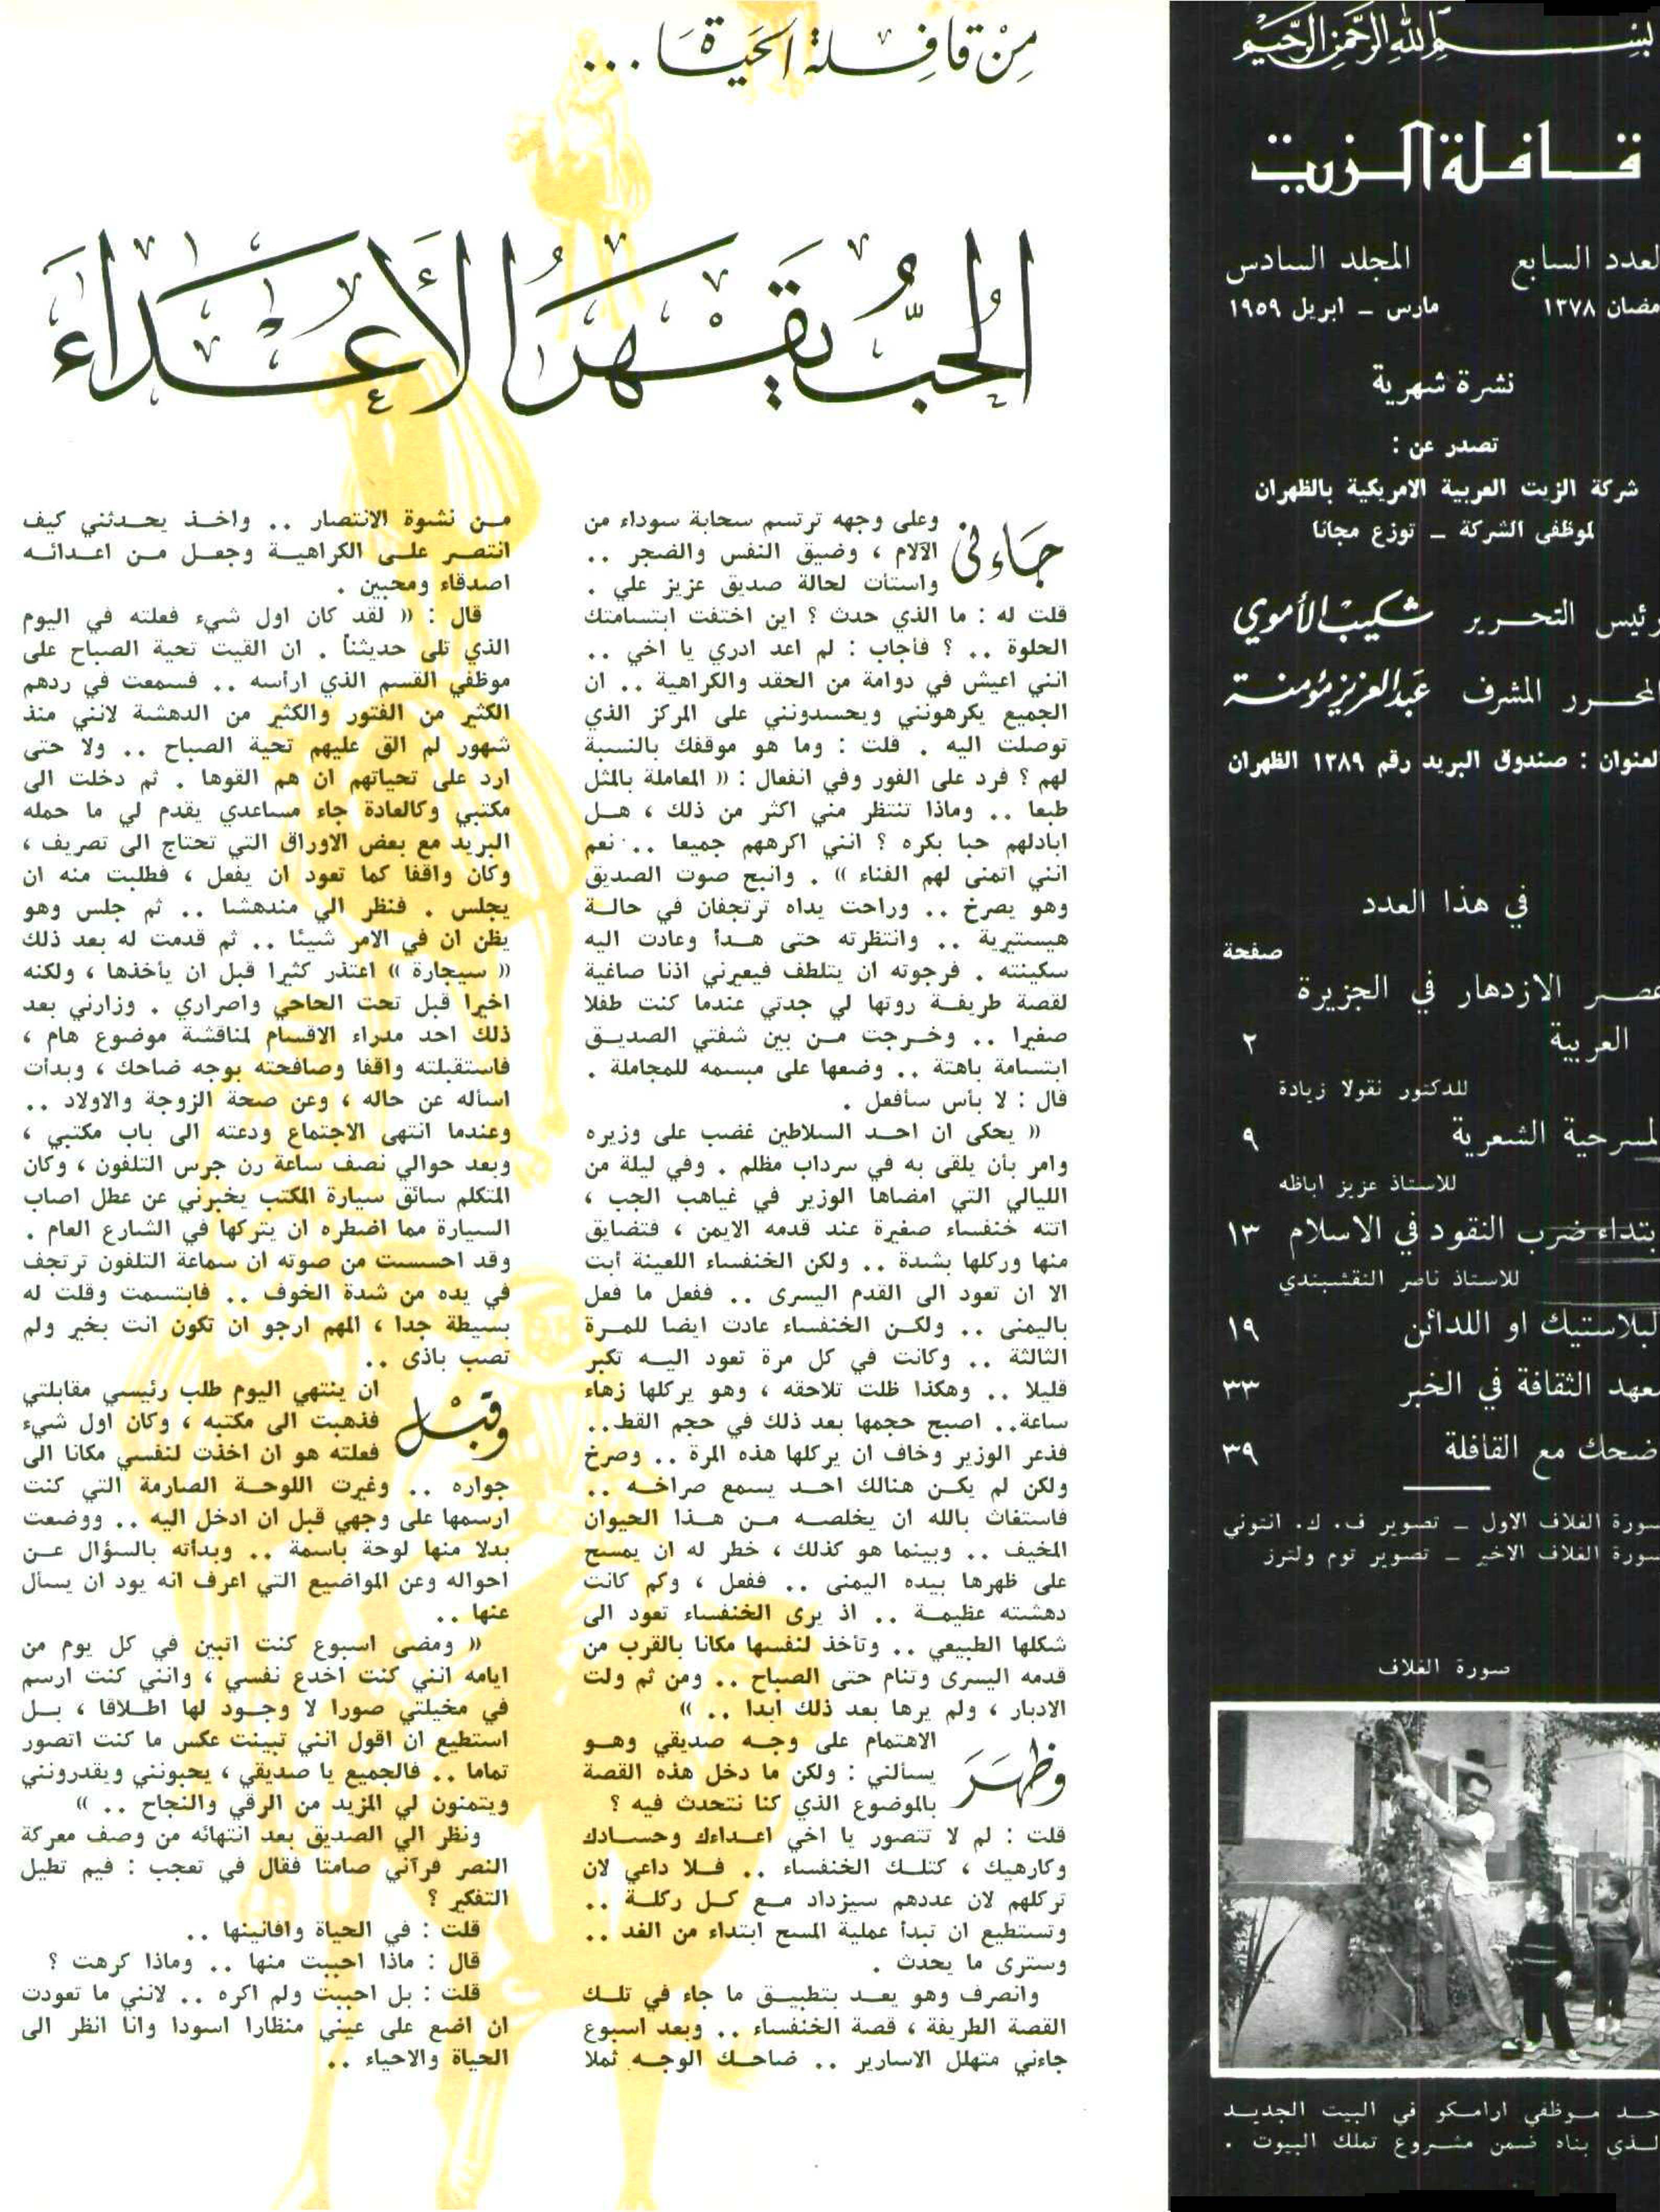 بسم الله الرحمن الرحيم
قافلة الزيت
العدد السابع المجلد السادس
رمضان ١٣٧٨ مارس - ابريل ١٩٥٩
نشرة شهرية
تصدر عن :
شركة الزيت العربية الامريكية بالظهران
لموظفى الشركة - توزع مجانا
رئيس التحرير شكيب الأموي
المحرر المشرف عبد العزيز مؤمنة
العنوان : صندوق البريد رقم ١٣٨٩ الظهران
في هذا العدد
صفحة
عصر الازدهار في الجزيرة
العربية ٢
للدكتور نقولا زيادة
المسرحية الشعرية ٩
للاستاذ عزيز اباظه
ابتداء ضرب النقود في الاسلام ١٣
للاستاذ ناصر النقشبندي
البلاستيك او اللدائن ١٩
معهد الثقافة في الخبر ٣٣
اضحك مع القافلة ٣٩
صورة الغلاف الاول - تصوير ف. ك. انتوني
صورة الغلاف الاخير - تصوير توم ولترز
صورة الغلاف
احد موظفي ارامكو في البيت الجديد
الذي بناه ضمن مشروع تملك البيوت .
مِنْ قافِلة الحَيَاة ...
الحُبُّ يَقهَرُ الأَعْدَاءَ
جَاءني وعلى وجهه ترتسم سحابة سوداء من
الآلام ، وضيق النفس والضجر ..
واستأت لحالة صديق عزيز علي .
قلت له : ما الذي حدث ؟ اين اختفت ابتسامتك
الحلوة .. ؟ فأجاب : لم اعد ادري يا اخي ..
انني اعيش في دوامة من الحقد والكراهية .. ان
الجميع يكرهونني ويحسدونني على المركز الذي
توصلت اليه . قلت : وما هو موقفك بالنسبة
لهم ؟ فرد على الفور وفي انفعال : « المعاملة بالمثل
طبعا .. وماذا تنتظر مني اكثر من ذلك ، هل
ابادلهم حبا بكره ؟ انني اكرههم جميعا .. نعم
انني اتمنى لهم الفناء » . وانبح صوت الصديق
وهو يصرخ .. وراحت يداه ترتجفان في حالة
هيستيرية .. وانتظرته حتى هدأ وعادت اليه
سكينته . فرجوته ان يتلطف فيعيرني اذنا صاغية
لقصة طريفة روتها لي جدتي عندما كنت طفلا
صغيرا .. وخرجت من بين شفتي الصديق
ابتسامة باهتة .. وضعها على مبسمه للمجاملة .
قال : لا بأس سأفعل .
« يحكى ان احد السلاطين غضب على وزيره
وامر بأن يلقى به في سرداب مظلم . وفي ليلة من
الليالي التي امضاها الوزير في غياهب الجب ،
اتته خنفساء صغيرة عند قدمه الايمن ، فتضايق
منها وركلها بشدة .. ولكن الخنفساء اللعينة أبت
الا ان تعود الى القدم اليسرى .. ففعل ما فعل
باليمنى .. ولكن الخنفساء عادت ايضا للمرة
الثالثة .. وكانت في كل مرة تعود اليه تكبر
قليلا .. وهكذا ظلت تلاحقه ، وهو يركلها زهاء
ساعة.. اصبح حجمها بعد ذلك في حجم القط..
فذعر الوزير وخاف ان يركلها هذه المرة .. وصرخ
ولكن لم يكن هنالك احد يسمع صراخه ..
فاستغاث بالله ان يخلصه من هذا الحيوان
المخيف .. وبينما هو كذلك ، خطر له ان يمسح
على ظهرها بيده اليمنى .. ففعل ، وكم كانت
دهشته عظيمة .. اذ يرى الخنفساء تعود الى
شكلها الطبيعي .. وتأخذ لنفسها مكانا بالقرب من
قدمه اليسرى وتنام حتى الصباح .. ومن ثم ولت
الادبار ، ولم يرها بعد ذلك ابدا .. »
وَظهَرَ الاهتمام على وجه صديقي وهو
يسألني : ولكن ما دخل هذه القصة
بالموضوع الذي كنا نتحدث فيه ؟
قلت : لم لا تتصور يا اخي اعداءك وحسادك
وكارهيك ، كتلك الخنفساء .. فلا داعي لان
تركلهم لان عددهم سيزداد مع كل ركلة ..
وتستطيع ان تبدأ عملية المسح ابتداء من الغد ..
وسترى ما يحدث .
وانصرف وهو يعد بتطبيق ما جاء في تلك
القصة الطريفة ، قصة الخنفساء .. وبعد اسبوع
جاءني متهلل الاسارير .. ضاحك الوجه ثملا
من نشوة الانتصار .. واخذ يحدثني كيف
انتصر على الكراهية وجعل من اعدائه
اصدقاء ومحبين .
قال : « لقد كان اول شيء فعلته في اليوم
الذي تلى حديثنا . ان القيت تحية الصباح على
موظفي القسم الذي ارأسه .. فسمعت في ردهم
الكثير من الفتور والكثير من الدهشة لانني منذ
شهور لم الق عليهم تحية الصباح .. ولا حتى
ارد على تحياتهم ان هم القوها . ثم دخلت الى
مكتبي وكالعادة جاء مساعدي يقدم لي ما حمله
البريد مع بعض الاوراق التي تحتاج الى تصريف ،
وكان واقفا كما تعود ان يفعل ، فطلبت منه ان
يجلس . فنظر الي مندهشا .. ثم جلس وهو
يظن ان في الامر شيئا .. ثم قدمت له بعد ذلك
« سيجارة » اعتذر كثيرا قبل ان يأخذها ، ولكنه
اخيرا قبل تحت الحاحي واصراري . وزارني بعد
ذلك احد مدراء الاقسام لمناقشة موضوع هام ،
فاستقبلته واقفا وصافحته بوجه ضاحك ، وبدأت
اسأله عن حاله ، وعن صحة الزوجة والاولاد ..
وعندما انتهى الاجتماع ودعته الى باب مكتبي ،
وبعد حوالي نصف ساعة رن جرس التلفون ، وكان
المتكلم سائق سيارة المكتب يخبرني عن عطل اصاب
السيارة مما اضطره ان يتركها في الشارع العام .
وقد احسست من صوته ان سماعة التلفون ترتجف
في يده من شدة الخوف .. فابتسمت وقلت له
بسيطة جدا ، المهم ارجو ان تكون انت بخير ولم
تصب باذى ..
وقبْل ان ينتهي اليوم طلب رئيسي مقابلتي
فذهبت الى مكتبه ، وكان اول شيء
فعلته هو ان اخذت لنفسي مكانا الى
جواره .. وغيرت اللوحة الصارمة التي كنت
ارسمها على وجهي قبل ان ادخل اليه .. ووضعت
بدلا منها لوحة باسمة .. وبدأته بالسؤال عن
احواله وعن المواضيع التي اعرف انه يود ان يسأل
عنها ..
« ومضى اسبوع كنت اتبين في كل يوم من
ايامه انني كنت اخدع نفسي ، وانني كنت ارسم
في مخيلتي صورا لا وجود لها اطلاقا ، بل
استطيع ان اقول انني تبينت عكس ما كنت اتصور
تماما .. فالجميع يا صديقي ، يحبونني ويقدرونني
ويتمنون لي المزيد من الرقي والنجاح .. »
ونظر الي الصديق بعد انتهائه من وصف معركة
النصر فرآني صامتا فقال في تعجب : فيم تطيل
التفكير ؟
قلت : في الحياة وافانينها ..
قال : ماذا احببت منها .. وماذا كرهت ؟
قلت : بل احببت ولم اكره .. لانني ما تعودت
ان اضع على عيني منظارا اسودا وانا انظر الى
الحياة والاحياء ..